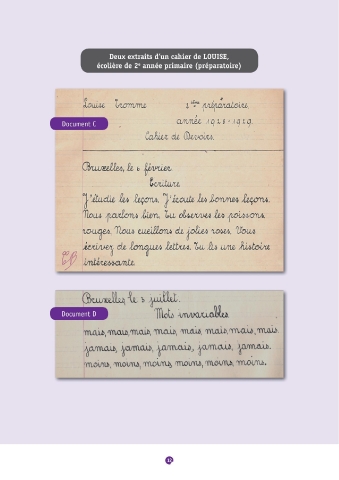 Deux extraits d'un cahier de LOUISE,
écolière de 2e année primaire (préparatoire)
Document C
Louise Tromme 2ème préparatoire.
année 1928-1929.
Cahier de Devoirs.
Bruxelles, le 6 février.
Ecriture
J'étudie les leçons. J'écoute les bonnes leçons.
Nous parlons bien. Tu observes les poissons
rouges. Nous cueillons de jolies roses. Vous
écrivez de longues lettres. Tu lis une histoire
intéressante.
TB
Document D
Bruxelles, le 3 juillet.
Mots invariables
mais, mais, mais, mais, mais, mais, mais, mais.
jamais, jamais, jamais, jamais, jamais, jamais.
moins, moins, moins, moins, moins, moins.